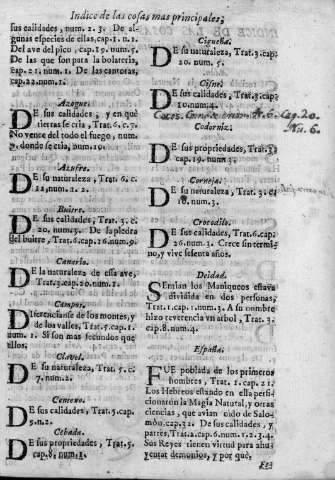 Indice de las cosas mas principales,
sus calidades, num. 2. 3. De al-
gunas especies de ellas, cap. 1. n. 1.
Del ave del pico, cap. 19. num. 5.
De las que son para la bolateria,
cap. 21. num. 1. De las cantoras,
cap. 22. num. 1.
Azogue.
DE sus calidades, y en què
tierras se cria, Trat. 6. c. 7.
No vence del todo el fuego, num.
9. donde se cria, num. 19.
Azufre.
DE su naturaleza, Trat. 6. c.
12, num. 2. 2.
Buitre.
DE sus calidades, Trat. 3. c.
20. num. 3. De la piedra
del buitre, Trat. 6. cap. 16. num. 9.
Canario.
DE la naturaleza de esta ave,
Trat. 3. cap. 20. num. 1.
Campos.
DIferencianse de los montes, y
de los valles, Trat. 5. cap. 1.
num. 1. Si son mas fecundos que
ellos.
Clavel.
DE su naturaleza, Trat. 5. c.
7. num. 2.
Centeno.
DE sus calidades, Trat. 5. cap.
5. n. 2.
Cebada.
DE sus propriedades, Trat. 5.
cap. 8, num. 1.
Cigueña.
DE su naturaleza, Trat. 3. cap.
20. num. 5.
Cisne.
DE sus calidades, Trat. 3. cap.
10. num. 4.
Cap. 20.
Nu. 6.
Codorniz.
DE sus propriedades, Trat. 3.
cap. 19. num. 3.
Corneja.
DE su naturaleza, Trat. 3. c.
18. num. 3.
Crocodilo.
DE sus calidades, Trat. 6. cap.
26. num. 3. Crece sin termi-
no, y vive sesenta años.
Deidad.
SEntian los Maniqueos estava
dividida en dos personas,
Trat. 1. cap. 1. num. 3. A su nombre
hizo reverencia vn arbol, Trat. 3.
cap. 8. num. 4.
España.
FUE poblada de los primeros
hombres, Trat. 1. cap. 21.
Los Hebreos estando en ella persi-
cionaron la Magia Natural, y otras
ciencias, que avian oido de Salo-
mòn, cap. 31. De sus calidades, y
partes, Trat. 2. cap. 6. num. 1. 2. 3. 4.
Sus Reyes tienen virtud para ahu-
yentar demonios, y por què,